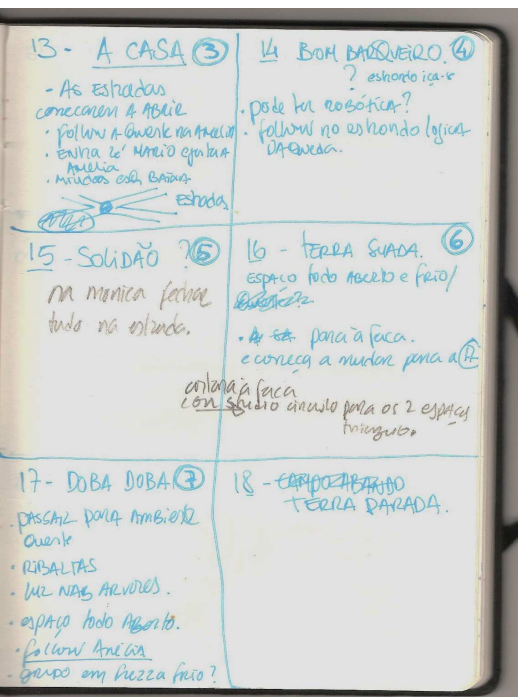 13 - A CASA 3
- As Estradas
começarem A ABRIR
• follow A Quente na Amelia
• Entra Zé MARIO e junta A
Amelia
• miudos com BATATA
Estradas
14 BOM BARQUEIRO. 4
?
• pode ter robótica?
• follow no estrondo logica
DAQUEDA.
15 - SOLIDÃO ? 5
na monica fechar
tudo na estrada.
16 - TERRA SUADA. 6
ESPAÇO todo ABERTO e frio/
para à faca.
e começa a mudar para a
à faca
com circulo para os 2 espaços
triangulo.
17 - DOBA DOBA 7
• PASSAR para AMBIENTE
Quente
• RIBALTAS
• LUZ NAS ARVORES.
• espaço todo Aberto.
• follow Amelia
• grupo em frio?
18 -
TERRA PARADA.